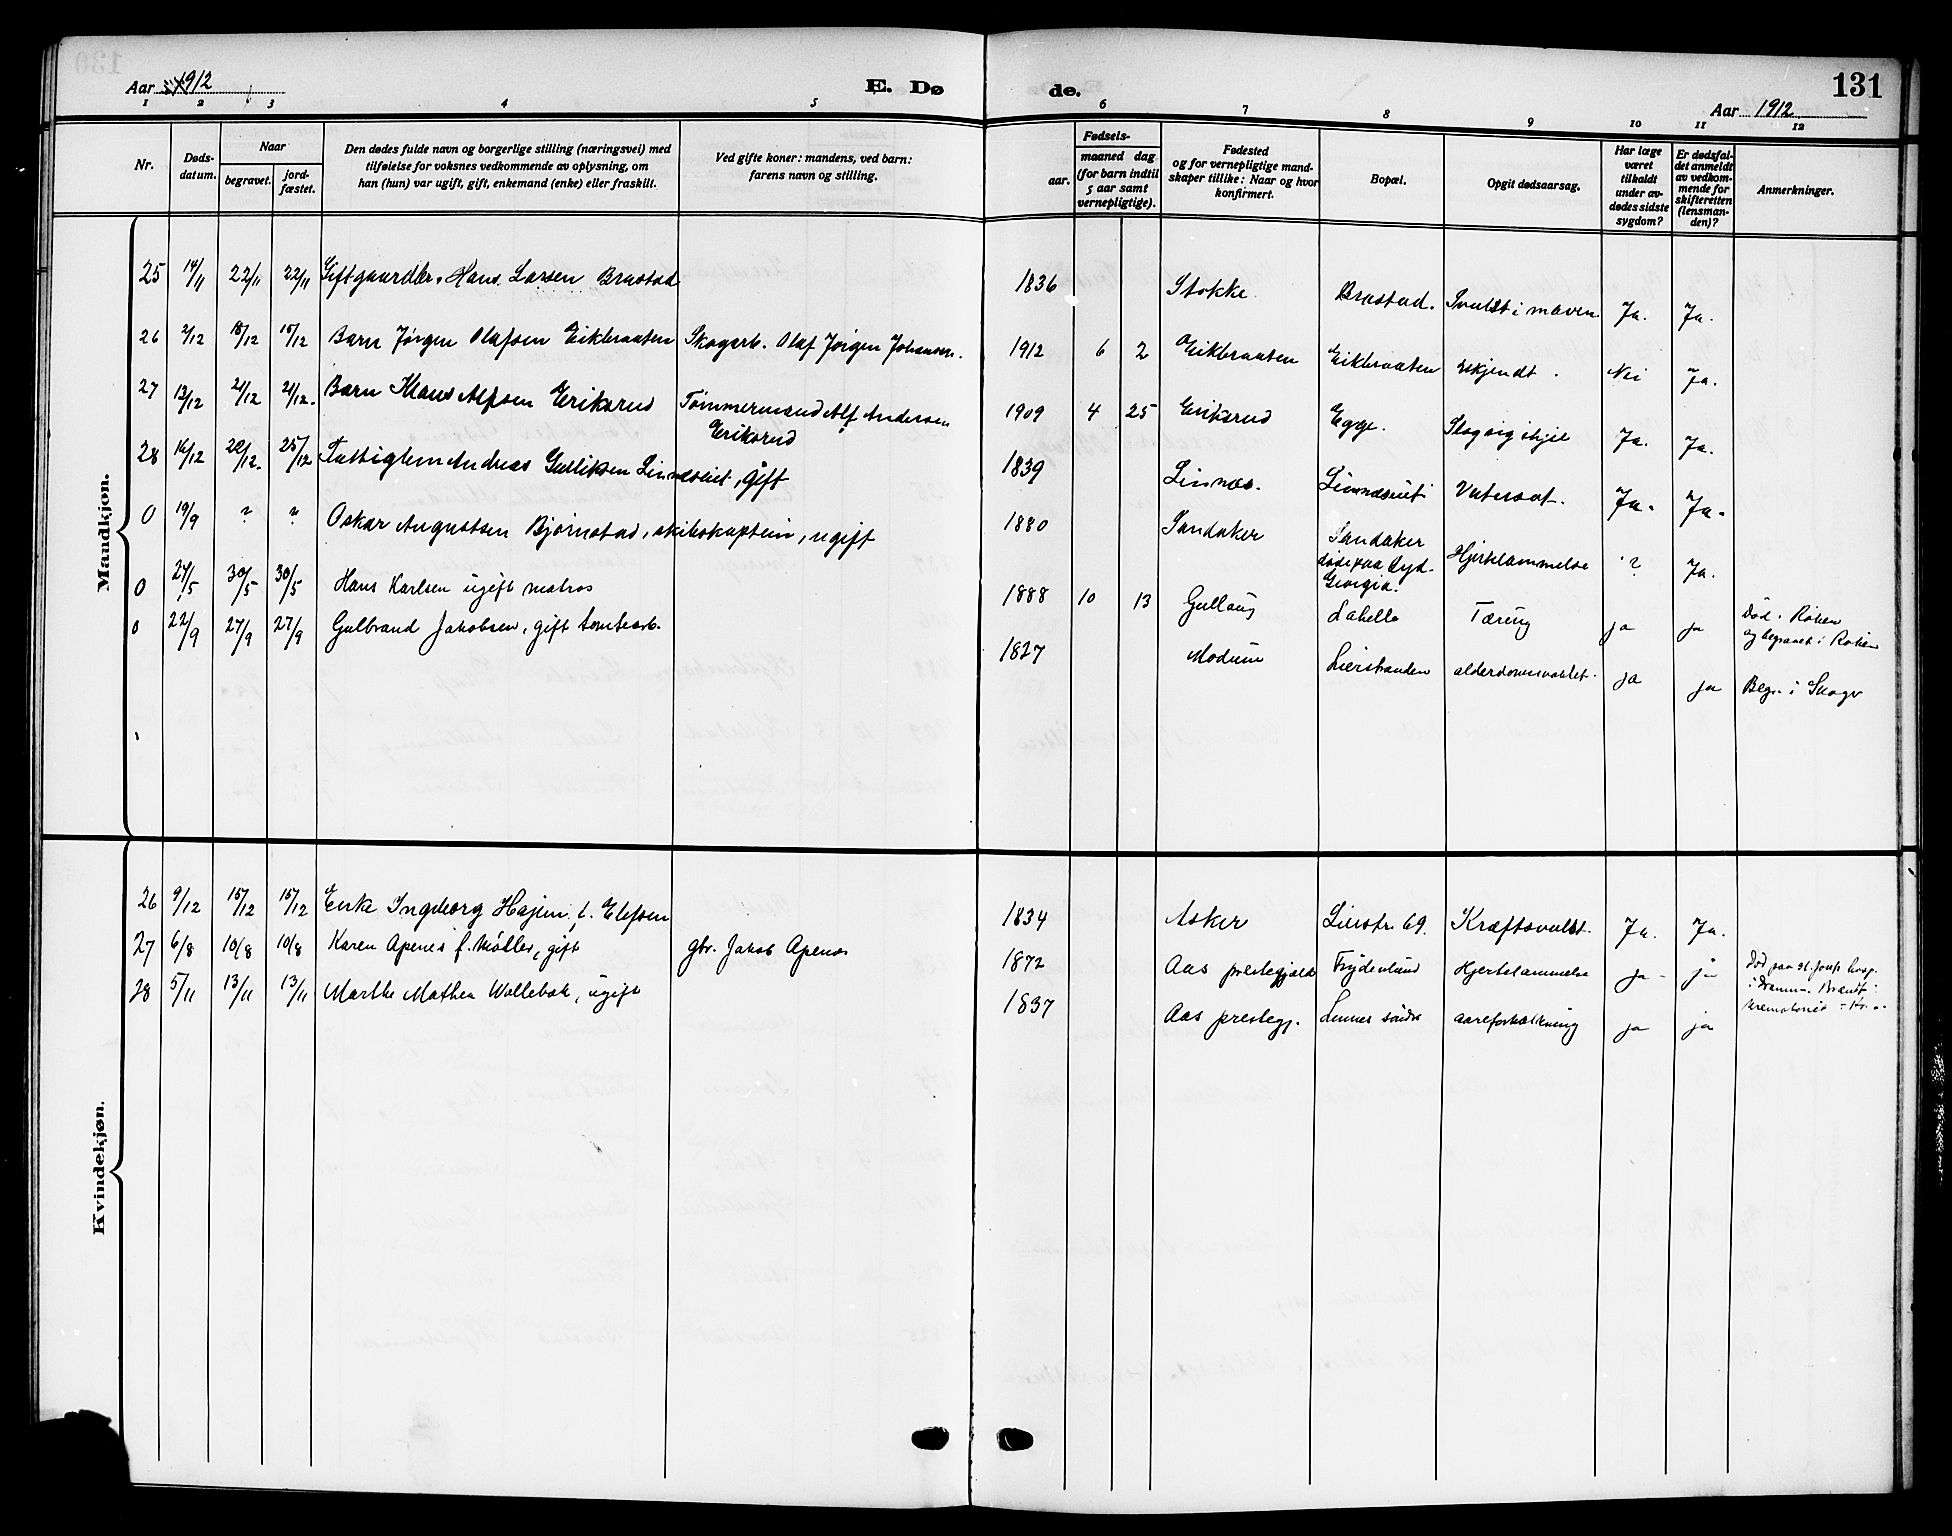 130
Aar 1912
E. Dø
de.
131
Aar 1912
1 2 3 4 5 6 7 8 9 10 11 12
Nr.
Døds-
datum.
Naar
begravet.
jord-
fæstet.
Den dødes fulde navn og borgerlige stilling (næringsvei) med
tilføielse for voksnes vedkommende av oplysning, om
han (hun) var ugift, gift, enkemand (enke) eller fraskilt.
Ved gifte koner: mandens, ved barn:
farens navn og stilling.
Fødsels-
aar.
maaned dag
(for barn indtil
5 aar samt
vernepligtige).
Fødested
og for vernepligtige mand-
skaper tillike: Naar og hvor
konfirmert.
Bopæl.
Opgit dødsaarsag.
Har læge
været
tilkaldt
under av-
dødes sidste
sygdom?
Er dødsfal-
det anmeldt
av vedkom-
mende for
skifteretten
(lensman-
den)?
Anmerkninger.
Mandkjøn.
25 14/11 22/11 22/11 Gift gaardbr. Hans Larsen Brastad 1836 Stokke Brastad. Svulst i maven Ja. Ja.
26 2/12 15/12 15/12 Barn Jørgen Olafsen Eikbraaten Skogarb. Olaf Jørgen Johansen. 1912 6 2 Eikbraaten Eikbraaten Ukjendt. Nei Ja.
27 13/12 21/12 21/12. Barn Klaus Alfsen Eriksrud Tømmermand Alf Andersen
Eriksrud 1909 4 25 Eriksrud Egge. Slog sig ihjel Ja. Ja.
28 16/12 20/12. 25/12 Fattiglem Andreas Gulliksen Linnesviet, Gift 1839 Linnæs. Vatersot. Ja. Ja.
0 19/9 ? ? Oskar Augustsen Bjørnstad, skibskaptein, ugift 1880 Sandaker Sandaker
døde paa Syd-
Georgia. Hjertelammelse ? Ja.
0 27/5 30/5 30/5 Hans Karlsen ugift matros 1888 10 13 Gullaug Lahelle Tæring ja ja Død i Røken
og begravet i Røken
0 22/9 27/9 27/9 Gulbrand Jakobsen, gift tomtearb. 1827 Modum Lierstranden alderdomssvakhet. ja ja Begr. i Skoger
Kvindekjøn.
26 9/12 15/12 15/12 Enke Ingeborg Hajem, f. Elefsen 1834 Asker Lierstr. 69. Kræftsvulst. Ja. Ja.
27 6/8 10/8 10/8 Karen Apenes f. Møller, gift gbr. Jakob Apenes 1872 Aas prestegjeld Frydenlund Hjertelammelse ja ja Død paa St. Josefs hosp.
i Dramm. Brændt i
Krematoriet i Kr.a.
28 5/11 13/11 13/11 Marthe Mathea Wollebæk, ugift 1837 Aas prestegj. Linnes søndre aareforkalkning ja ja